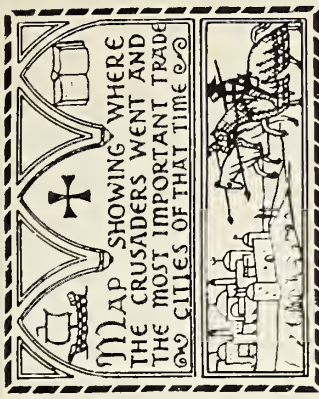 MAP SHOWING WHERE
THE CRUSADERS WENT AND
THE MOST IMPORTANT TRADE
CITIES OF THAT TIME